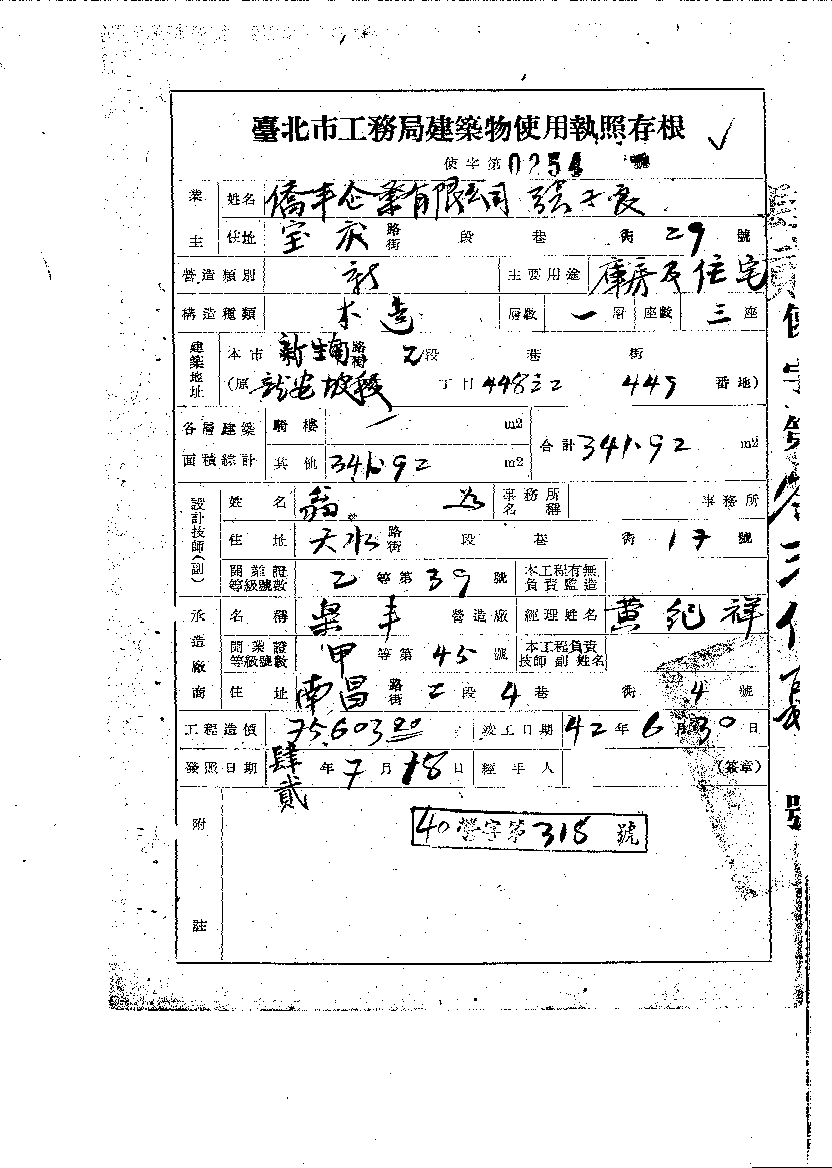 臺北市工務局建築物使用執照存根
使字第0254號
業主 姓名 僑丰企業有限公司 張子良
住址 宝慶 路街 段 巷 衖 29 號
營造類別 新 主要用途 庫房及住宅
構造種類 木造 層數 一層 座數 三座
建築地址 本市 新生南 路街 2段 巷 衖
(原 龍安坡段 丁目 448之2 449 番地)
各層建築面積綜計 騎樓 m2 合計 341.92 m2
其他 341.92 m2
設計技師(副) 姓名 翁 事務所名稱 事務所
住址 天水 路街 段 巷 衖 17 號
開業證等級號數 乙 等第 39 號 本工程有無負責監造
承造廠商 名稱 丰 營造廠 經理姓名 黄紀祥
開業證等級號數 甲 等第 45 號 本工程負責技師副姓名
住址 南昌 路街 2段 4巷 衖 4 號
工程造價 75,603.20 竣工日期 42年6月30日
發照日期 肆貳年7月18日 經手人 (簽章)
附註
40營字第318號